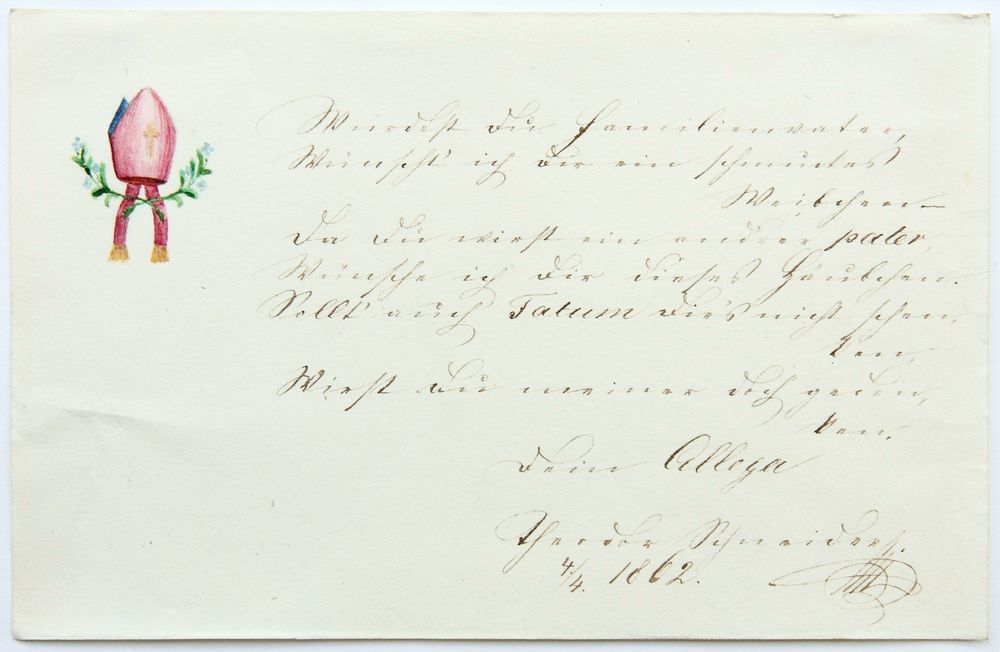 Würdest Du Familienvater,
Wünscht' ich Dir ein schmuckes
Weibchen –
Da Du wirst ein andrer pater,
Wünsche ich Dir dieses Häubchen.
Sollt' auch Fatum Dir's nicht schen,
ken,
Wirst Du meiner doch geden,
ken.
Dein Collega
Theodor Schneider
4/4. 1862.